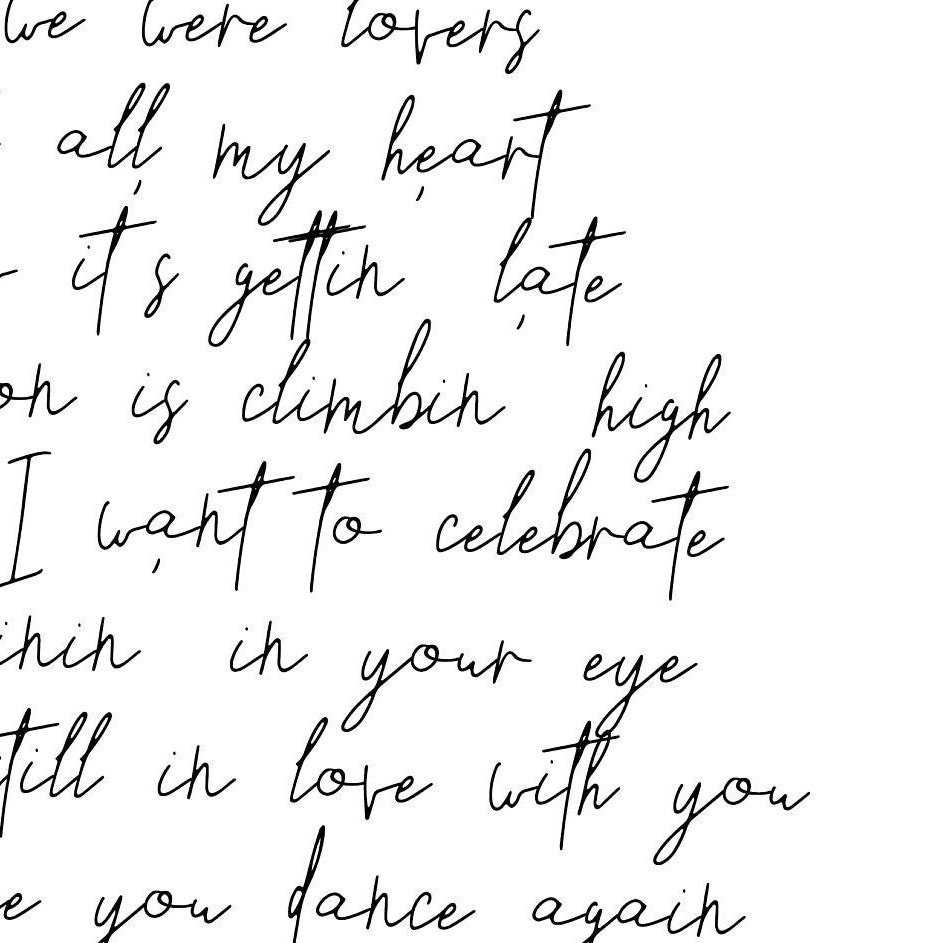 we were lovers
all my heart
it's gettin late
is climbin high
I want to celebrate
in your eye
in love with you
you dance again